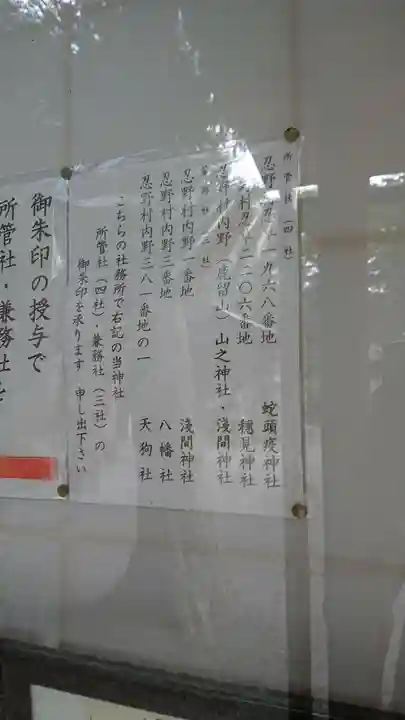 所管社(四社)
忍野村忍草一九六八番地 蛇頭疫神社
忍野村忍草二二〇六番地 穂見神社
忍野村内野(鹿留山) 山之神社・淺間神社
兼務社(三社)
忍野村内野一番地 淺間神社
忍野村内野三番地 八幡社
忍野村内野三八一番地の一 天狗社
こちらの社務所で右記の当神社
所管社(四社)・兼務社(三社)の
御朱印を承ります 申し出下さい
御朱印の授与で
所管社・兼務社を